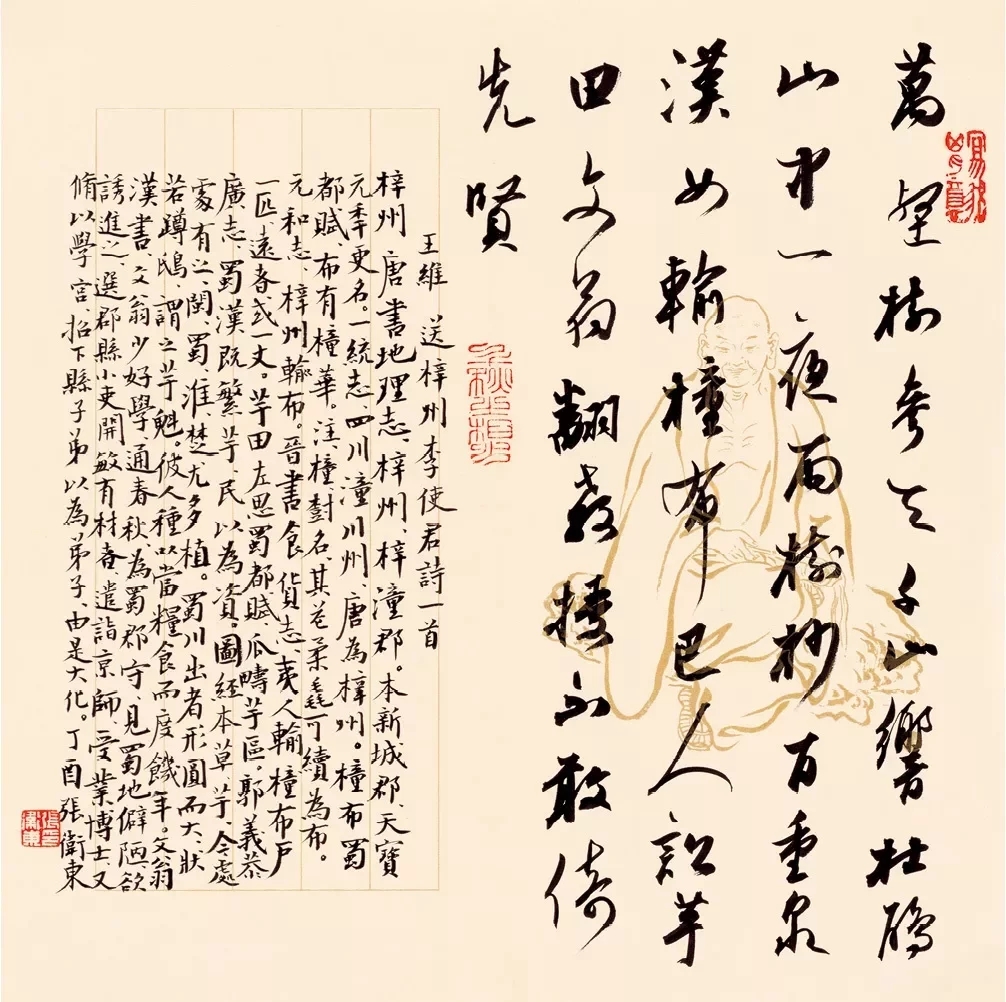 萬壑樹參天千山響杜鵑
山中一夜雨樹杪百重泉
漢女輸橦布巴人訟芋
田文翁翻教授不敢倚
先賢
王維 送梓州李使君詩一首
梓州 唐書地理志、梓州、梓潼郡。本新城郡、天寶
元年更名。一統志、四川潼川州、唐為梓州。橦布蜀
都賦、布有橦華。注橦樹名、其花柔毳可績為布。
元和志、梓州輸布。晉書食貨志、夷人輸橦布戶
一匹、遠者或一丈。芋田左思蜀都賦瓜疇芋區。郭義恭
廣志、蜀漢既繁芋、民以為資。圖經本草芋、今處
處有之、閩、蜀、淮楚尤多植。蜀川出者形圓而大、狀
若蹲鴟、謂之芋魁。彼人種以當糧食而度饑年。文翁
漢書、文翁少好學、通春秋、為蜀郡守、見蜀地僻陋、欲
誘進之、選郡縣小吏開敏有材者、遣詣京師、受業博士、又
脩以學宮、招下縣子弟以為弟子由是大化。丁酉張衛東